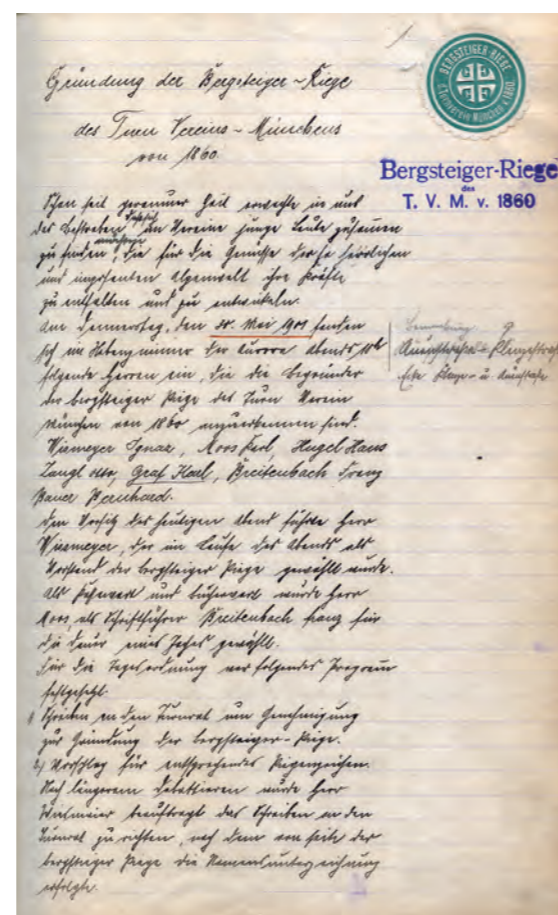 Gründung der Bergsteiger-Riege
des Turn Vereins-Münchens
von 1860.
BERGSTEIGER-RIEGE
d. Turnverein München v. 1860
Bergsteiger-Riege
des
T. V. M. v. 1860
Schon seit geraumer Zeit erwachte in uns
das Bestreben im Vereine junge Leute zusammen
zu finden, die für die Genüsse der so herrlichen
und imposanten Alpenwelt ihre Kräfte
zu entfalten und zu entwickeln.
Am Donnerstag, den 30. Mai 1901 fanden
sich im Nebenzimmer der abends
folgende Herren ein, die die Begründer
der Bergsteiger Riege des Turn Verein
München von 1860 anzuerkennen sind.
Wiesmeyer Ignaz, Moos Karl, Hugel Hans
Zangl Otto, Graf Karl, Breitenbach Franz
Bauer Bernhard.
Den Vorsitz des heutigen Abend führte Herr
Wiesmeyer, der im Laufe des Abends als
Vorstand der Bergsteiger Riege gewählt wurde.
Als Kassenwart und Bücherwart wurde Herr
Moos, als Schriftführer Breitenbach Franz für
die Dauer eines Jahres gewählt.
Für die Tagesordnung war folgendes Programm
festgesetzt.
1) Schreiben an den Turnrat um Genehmigung
zur Gründung der Bergsteiger-Riege.
2) Vorschlag für entsprechendes Riegenzeichen.
Nach längerem Debattieren wurde Herr
Wiesmeier beauftragt das Schreiben an den
Turnrat zu richten, nach dem von Seite der
Bergsteiger Riege die Namensunterzeichnung
erfolgte.